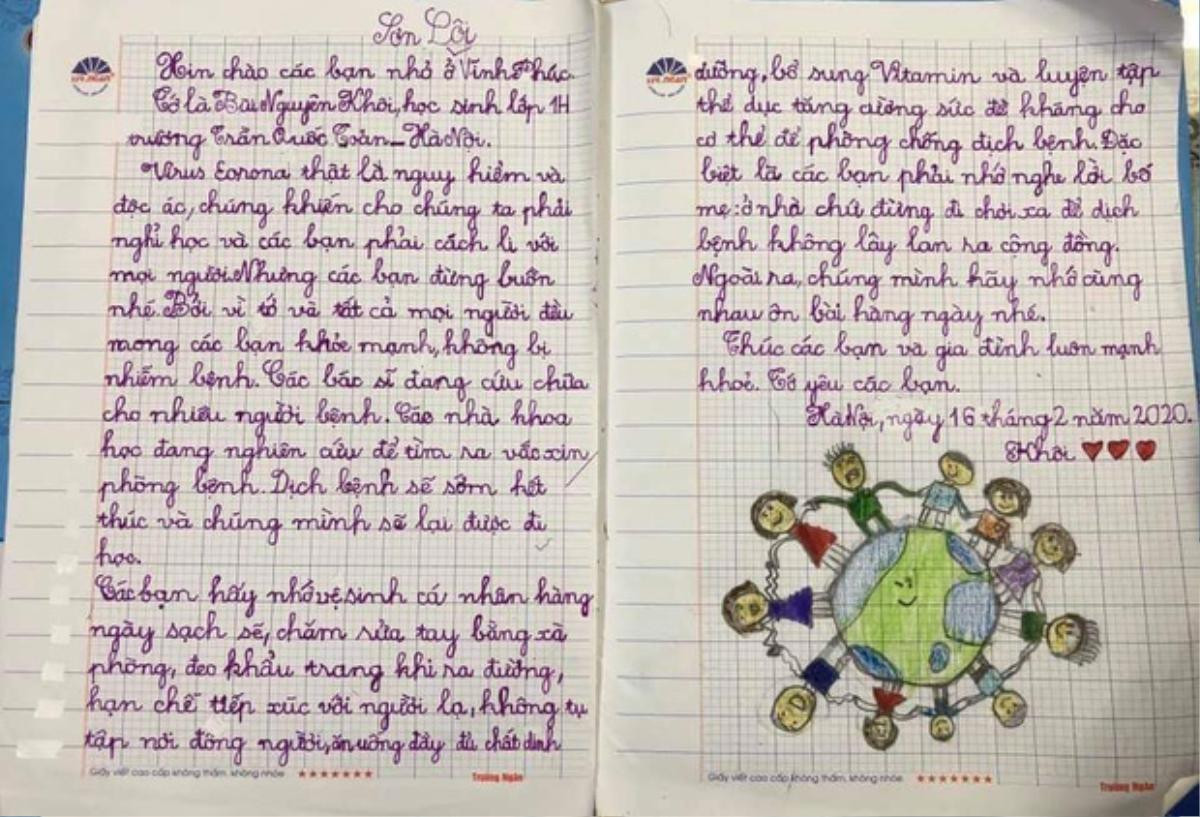 Sơn Lôi
Xin chào các bạn nhỏ ở Vĩnh Phúc.
Tớ là Bùi Nguyên Khôi, học sinh lớp 1H
trường Trần Quốc Toản - Hà Nội.
Virus Corona thật là nguy hiểm và
độc ác, chúng khiến cho chúng ta phải
nghỉ học và các bạn phải cách li với
mọi người. Nhưng các bạn đừng buồn
nhé. Bởi vì tớ và tất cả mọi người đều
mong các bạn khỏe mạnh, không bị
nhiễm bệnh. Các bác sĩ đang cứu chữa
cho nhiều người bệnh. Các nhà khoa
học đang nghiên cứu để tìm ra vắc xin
phòng bệnh. Dịch bệnh sẽ sớm hết
thúc và chúng mình sẽ lại được đi
học.
Các bạn hãy nhớ vệ sinh cá nhân hàng
ngày sạch sẽ, chăm rửa tay bằng xà
phòng, đeo khẩu trang khi ra đường,
hạn chế tiếp xúc với người lạ, không tụ
tập nơi đông người, ăn uống đầy đủ chất dinh
Giấy viết cao cấp không thấm, không nhòe ★★★★★★★ Trường Ngân
dưỡng, bổ sung Vitamin và luyện tập
thể dục tăng cường sức đề kháng cho
cơ thể để phòng chống dịch bệnh. Đặc
biệt là các bạn phải nhớ nghe lời bố
mẹ: ở nhà chứ đừng đi chơi xa để dịch
bệnh không lây lan ra cộng đồng.
Ngoài ra, chúng mình hãy nhớ cùng
nhau ôn bài hàng ngày nhé.
Thúc các bạn và gia đình luôn mạnh
khoẻ. Tớ yêu các bạn.
Hà Nội, ngày 16 tháng 2 năm 2020.
Khôi ♥♥♥
Giấy viết cao cấp không thấm, không nhòe ★★★★★★★ Trường Ngân